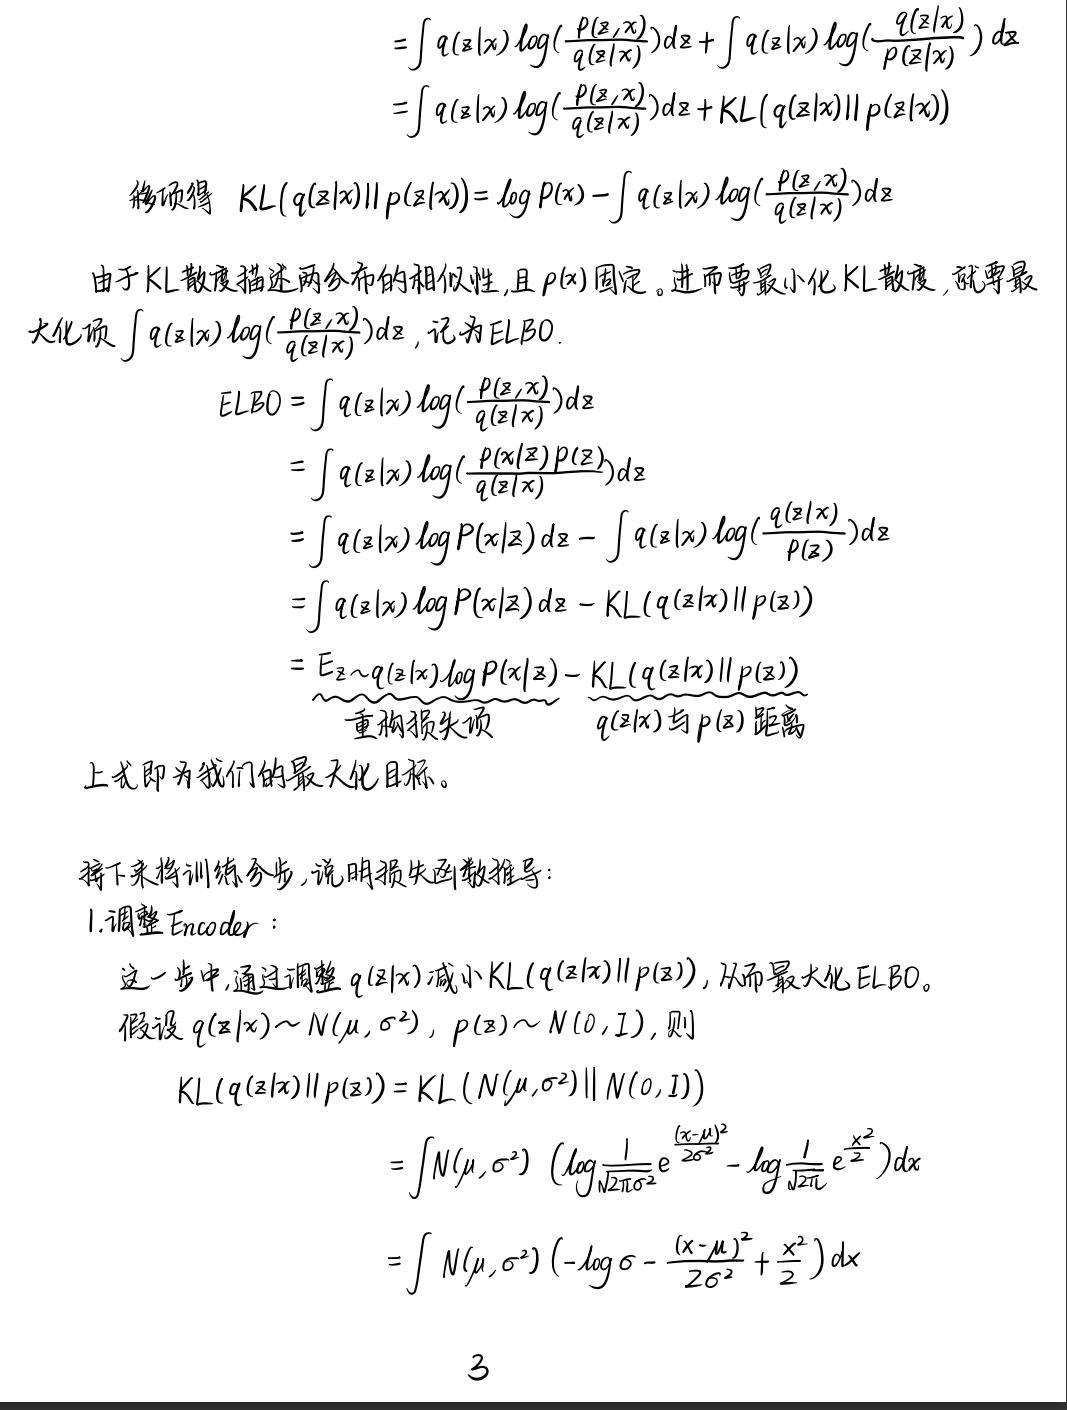 =∫q(z|x)log(P(z,x)/q(z|x))dz+∫q(z|x)log(q(z|x)/P(z|x))dz
=∫q(z|x)log(P(z,x)/q(z|x))dz+KL(q(z|x)||p(z|x))
移项得 KL(q(z|x)||p(z|x))=logP(x)-∫q(z|x)log(P(z,x)/q(z|x))dz
由于KL散度描述两分布的相似性,且p(x)固定。进而要最小化KL散度,就要最
大化项∫q(z|x)log(P(z,x)/q(z|x))dz,记为ELBO.
ELBO=∫q(z|x)log(P(z,x)/q(z|x))dz
=∫q(z|x)log(P(x|z)P(z)/q(z|x))dz
=∫q(z|x)logP(x|z)dz-∫q(z|x)log(q(z|x)/P(z))dz
=∫q(z|x)logP(x|z)dz-KL(q(z|x)||p(z))
=E_{z~q(z|x)}logP(x|z)-KL(q(z|x)||p(z))
重构损失项 q(z|x)与p(z)距离
上式即为我们的最大化目标。
接下来将训练分步,说明损失函数推导:
1.调整Encoder:
这一步中,通过调整q(z|x)减小KL(q(z|x)||p(z)),从而最大化ELBO。
假设q(z|x)~N(μ,σ²), p(z)~N(0,I),则
KL(q(z|x)||p(z))=KL(N(μ,σ²)||N(0,I))
=∫N(μ,σ²)(log 1/√(2πσ²) e^{(x-μ)²/2σ²}-log 1/√(2π) e^{x²/2})dx
=∫N(μ,σ²)(-logσ-(x-μ)²/2σ²+x²/2)dx
3